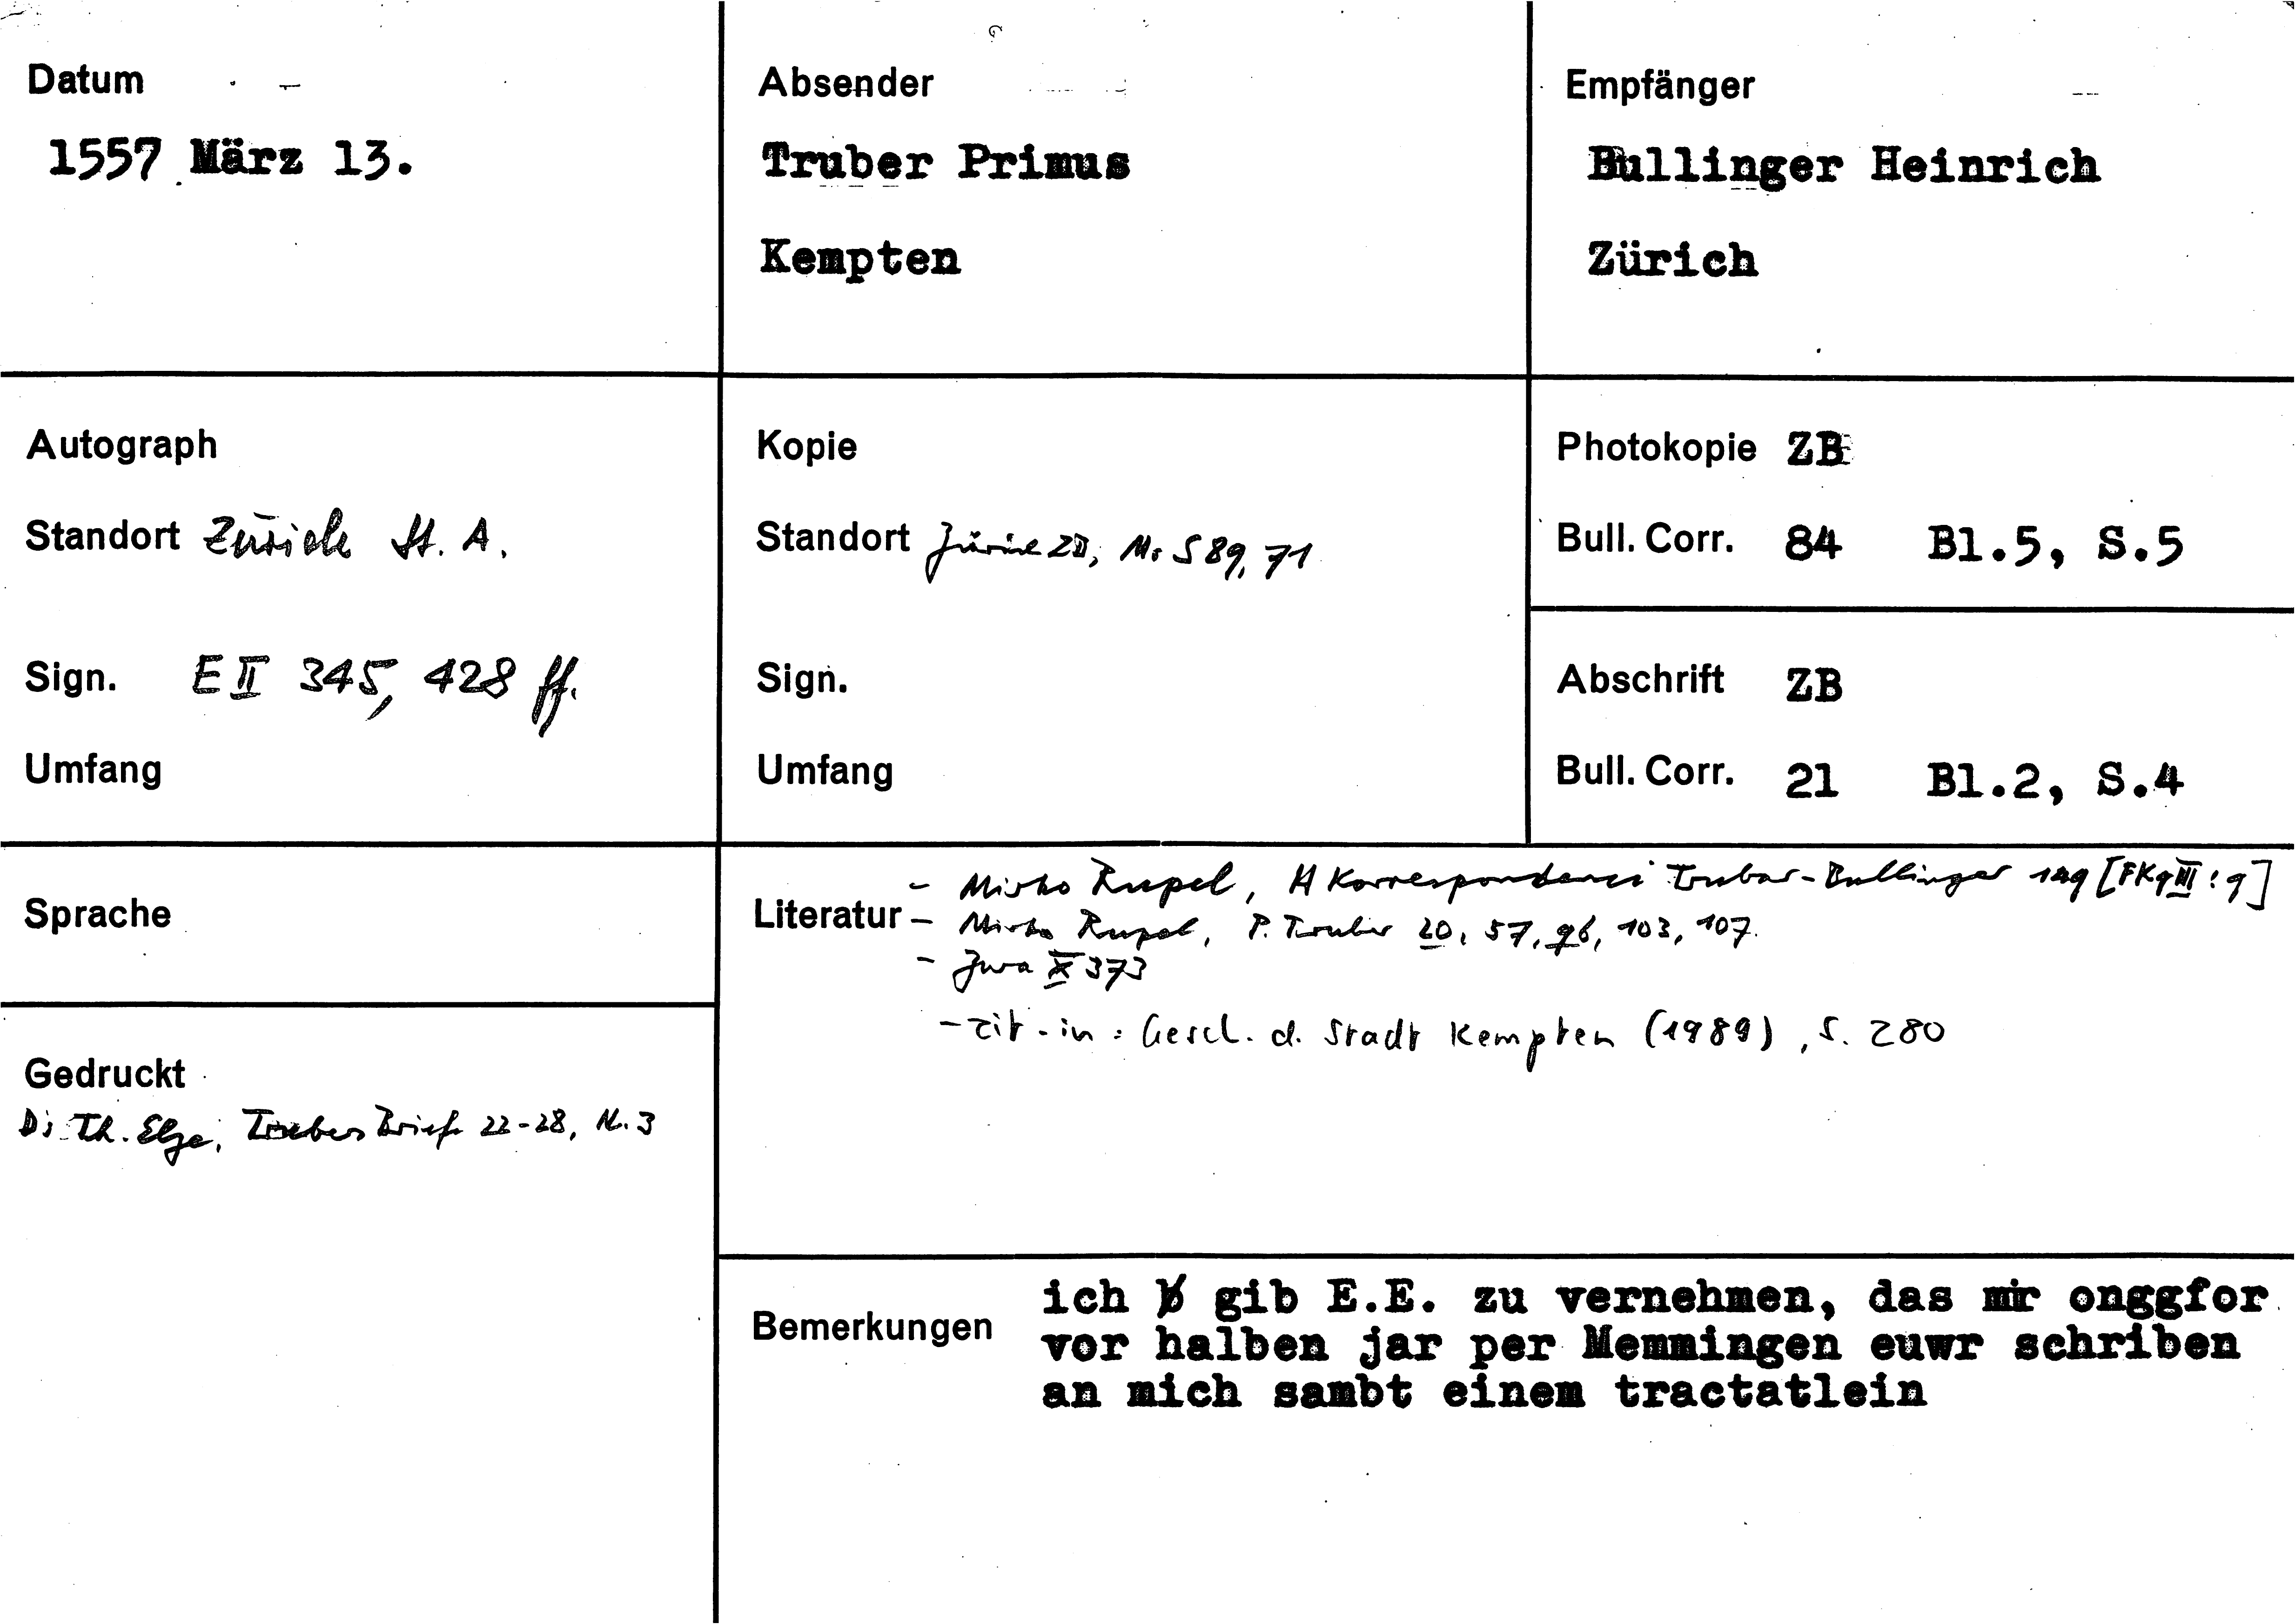 Datum
1557 März 13.
Absender
Truber Primus
Kempten
Empfänger
Bullinger Heinrich
Zürich
Autograph
Standort Zürich St. A.
Sign. E II 345, 428 ff.
Umfang
Kopie
Standort Zürich ZB, Ms S 89, 71
Sign.
Umfang
Photokopie ZB
Bull. Corr. 84 Bl.5, S.5
Abschrift ZB
Bull. Corr. 21 Bl.2, S.4
Sprache
Gedruckt
D: Th. Elze, Trubers Briefe 22-28, Nr. 3
Literatur
- Mirko Rupel, H Korrespondenci Trubar-Bullinger
- Mirko Rupel, P. Truber 20, 57, 96, 103, 107.
- Zwa X 373
- zit. in: Gesch. d. Stadt Kempten (1989), S. 280
Bemerkungen
ich gib E.E. zu vernehmen, das mir onggfor
vor halben jar per Memmingen euwr schriben
an mich sambt einem tractatlein